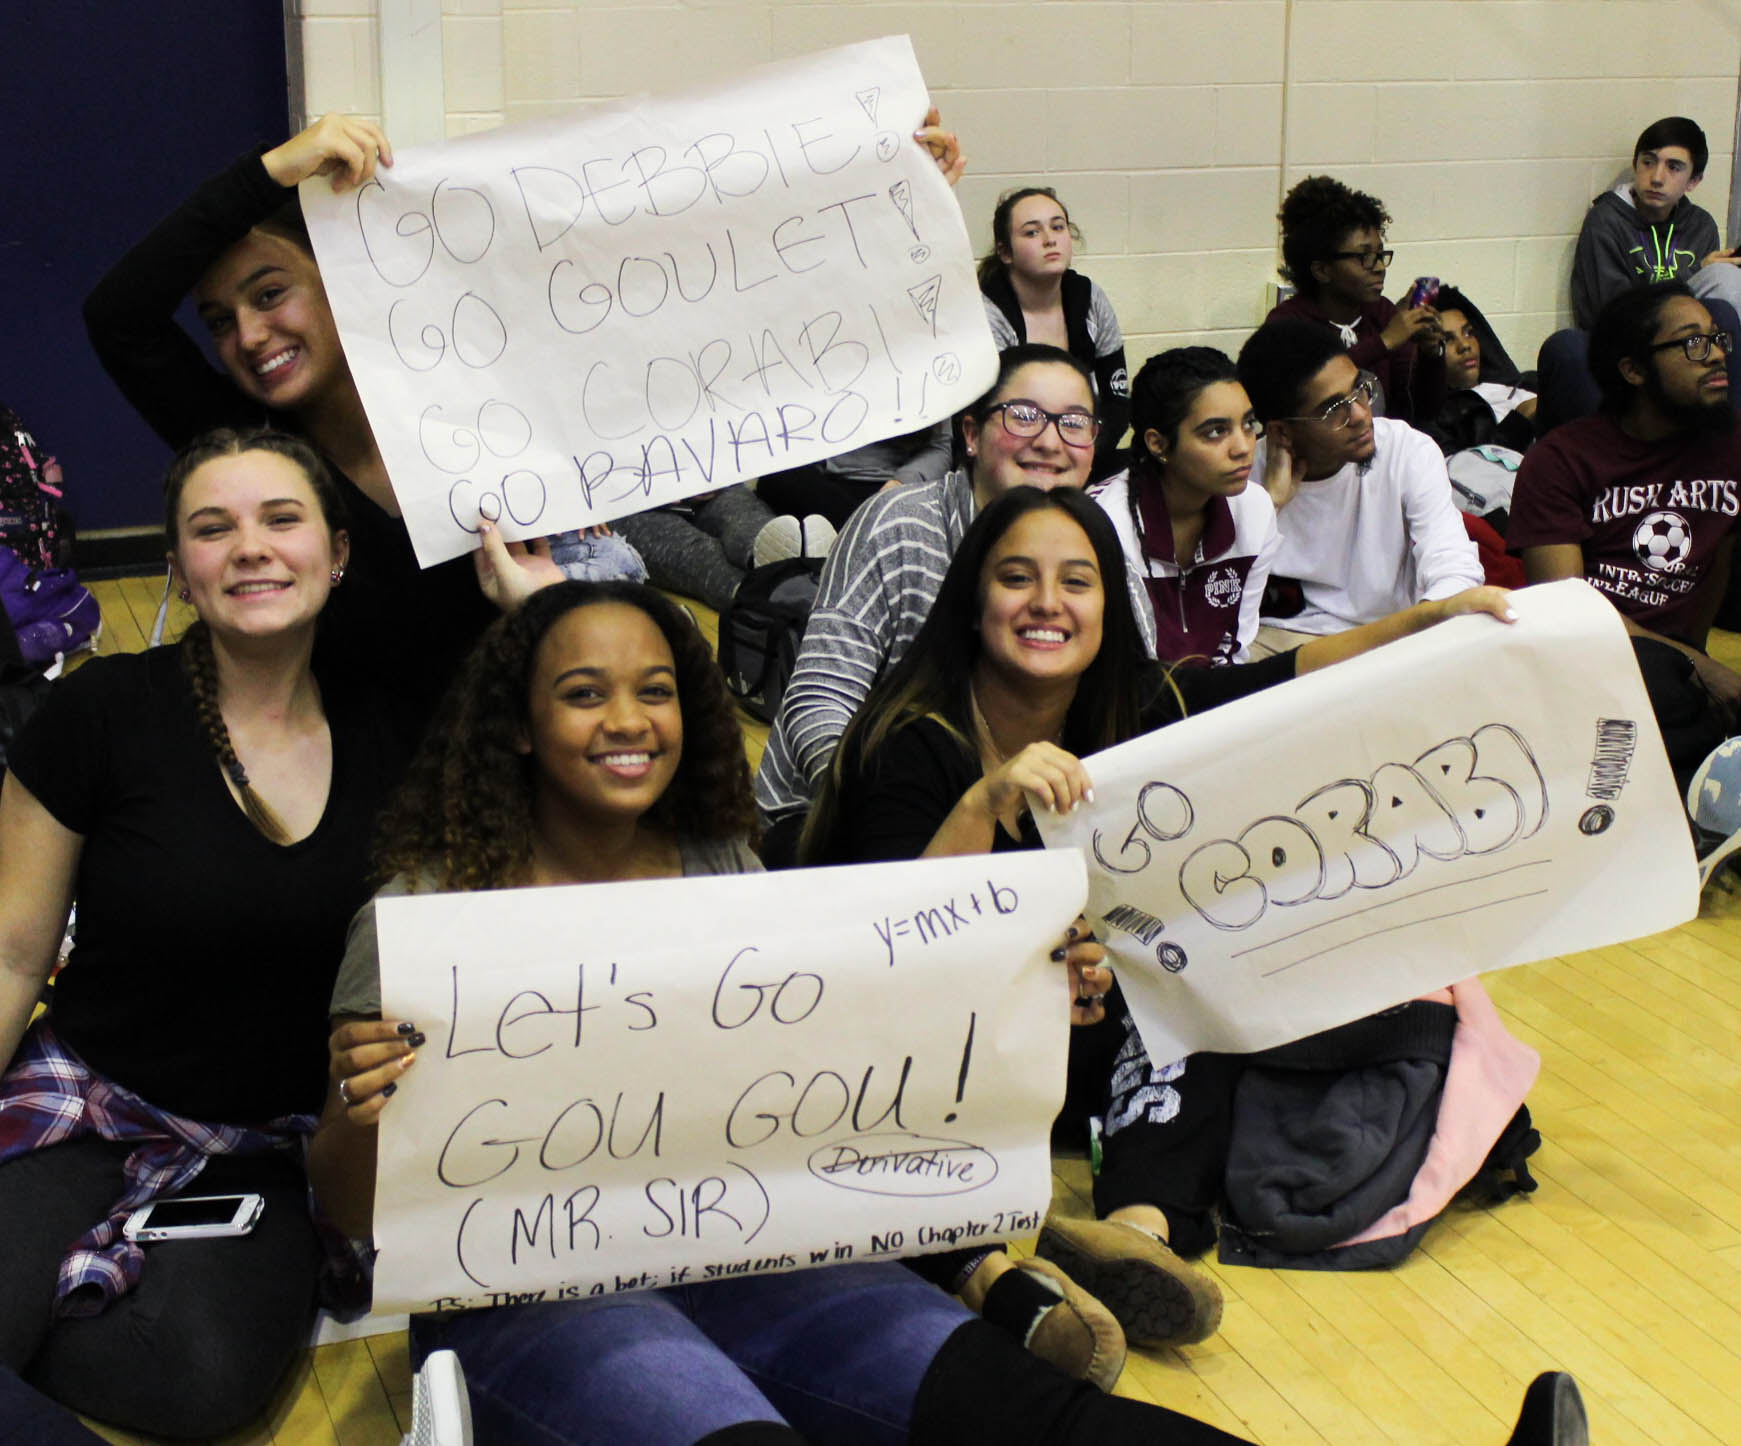 GO DEBBIE!
GO GOULET!
GO CORABI!
GO BAVARO!!
GO
CORABI!
!
y=mx+b
Let's Go
GOU GOU!
(MR. SIR)
Derivative
PS: There is a bet; if students win NO Chapter 2 Test
PINK
RUSH ARTS
INTR
SOCCER